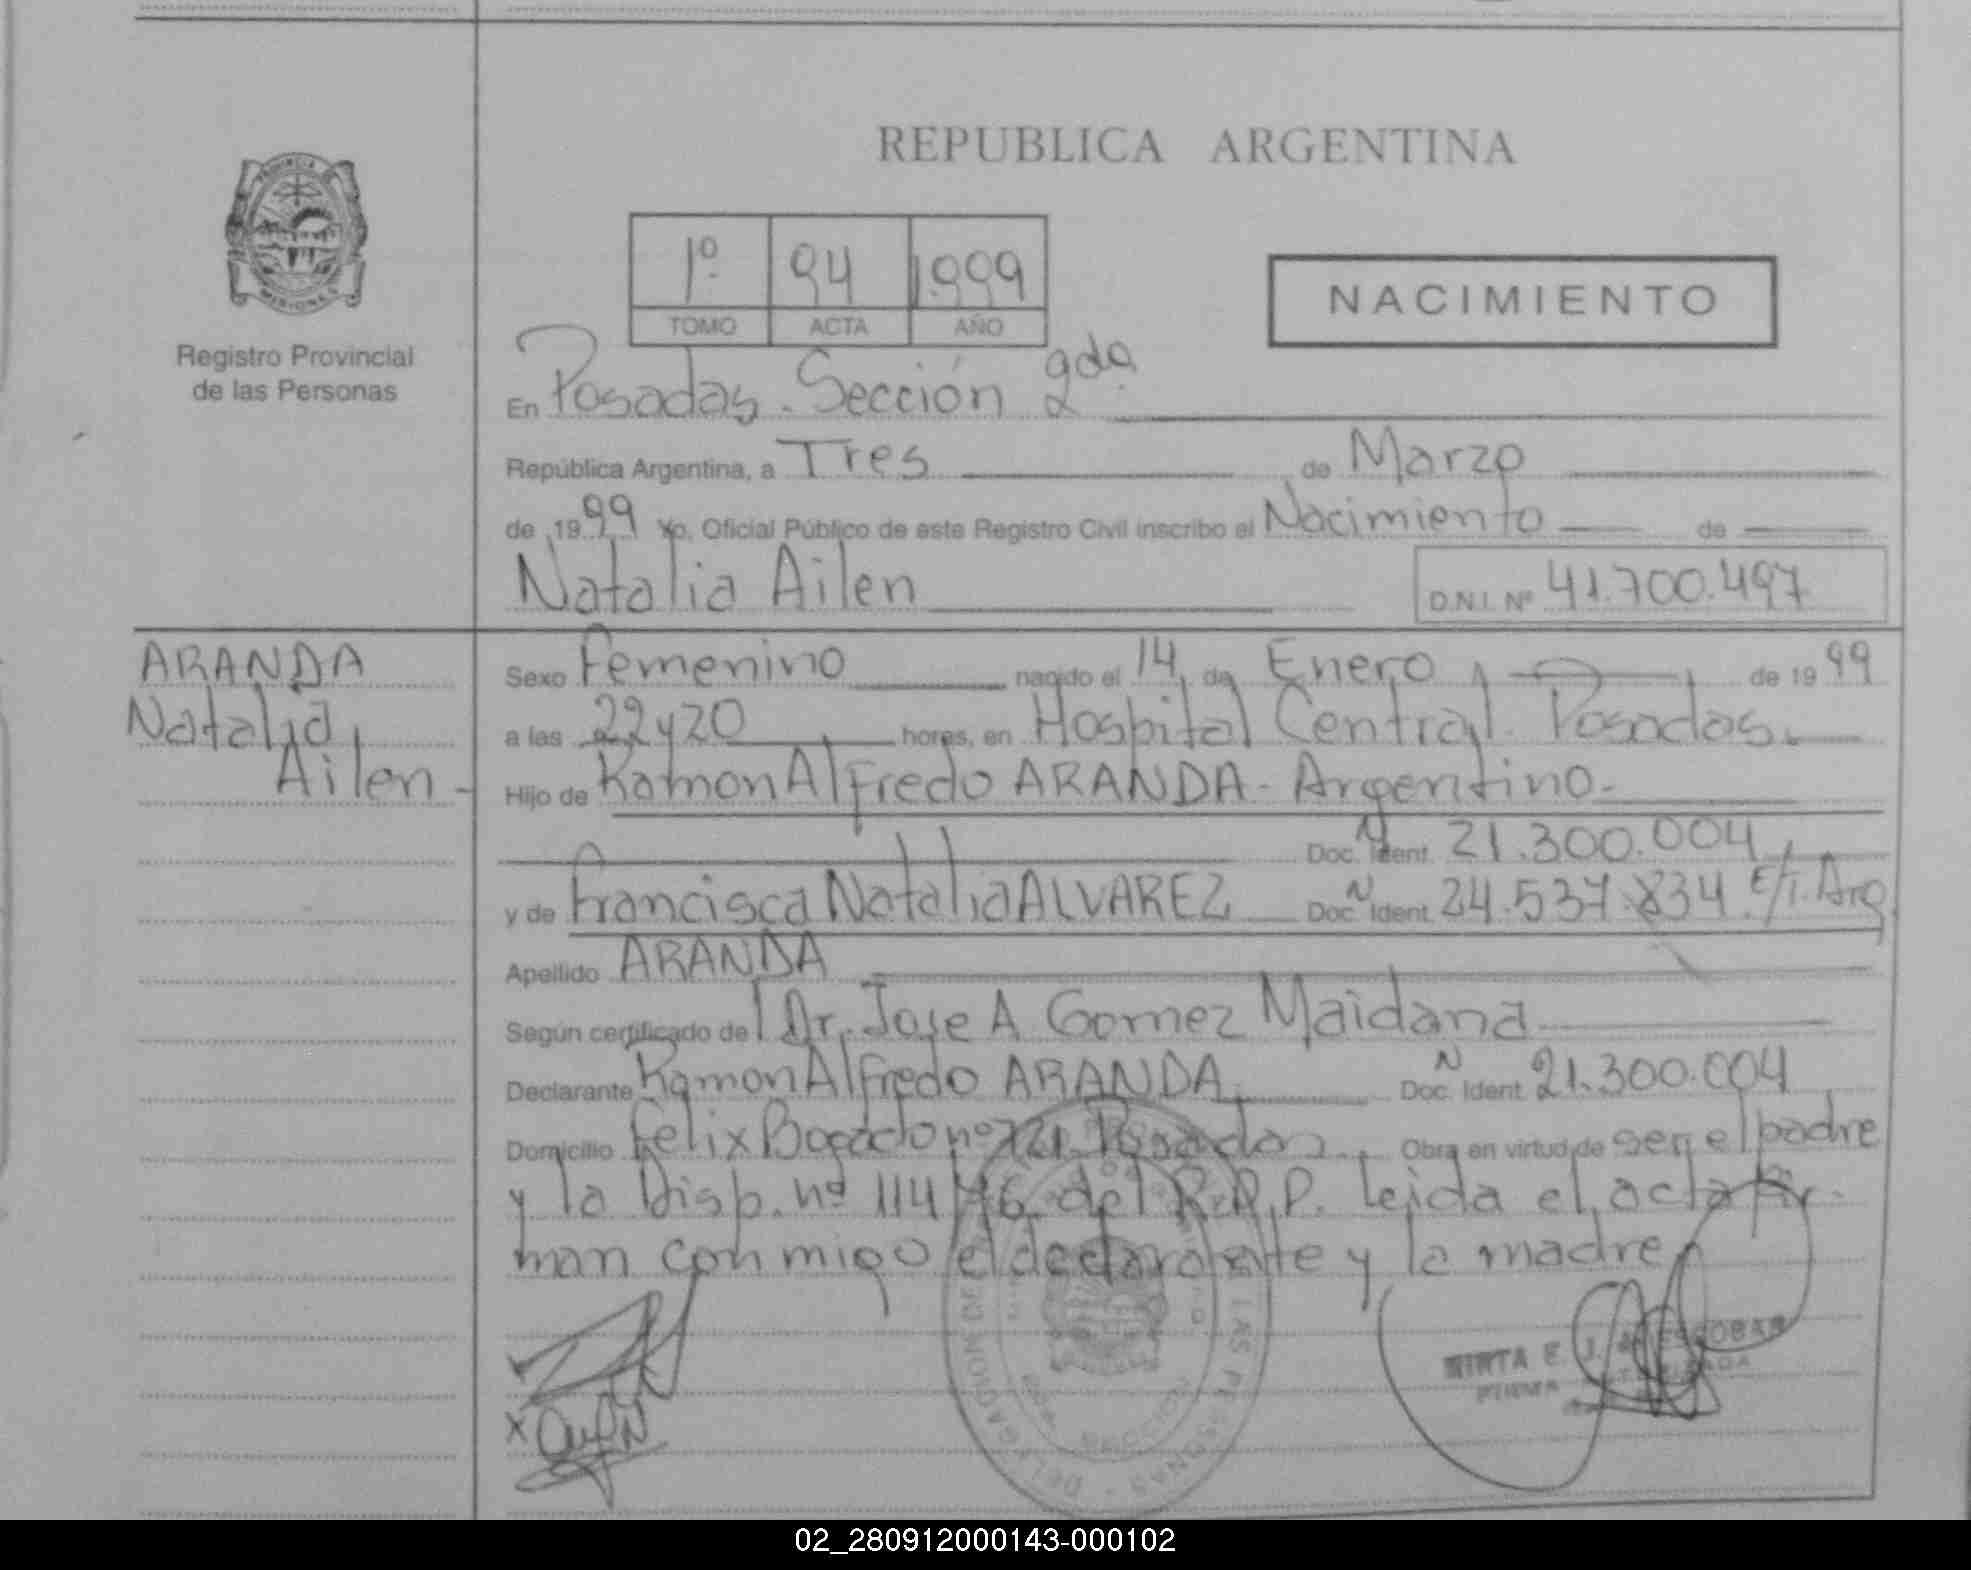 REPUBLICA ARGENTINA
PROVINCIA
MISIONES
Registro Provincial
de las Personas
1º 94 1.999
TOMO ACTA AÑO
NACIMIENTO
En Posadas. Sección 2da.
República Argentina, a Tres de Marzo
de 1999 Yo, Oficial Público de este Registro Civil inscribo el Nacimiento de
Natalia Ailen D.N.I. Nº 41.700.497
ARANDA
Natalia
Ailen -
Sexo Femenino nacido el 14 de Enero de 1999
a las 22 y 20 hores, en Hospital Central. Posadas.
Hijo de Ramon Alfredo ARANDA - Argentino.
Doc. Ident. N 21.300.004
y de Francisca Natalia ALVAREZ Doc. Ident. N 24.537.834 Arg
Apellido ARANDA
Según certificado de Dr. Jose A Gomez Maidana
Declarante Ramon Alfredo ARANDA. Doc. Ident. N 21.300.004
Domicilio Felix Bogado nº Posadas. Obra en virtud de ser el padre
y la Disp. nº 114/76 del R.P.P. Leida el acta fir-
man conmigo el declarante y la madre
DELEGACION DE LAS PERSONAS
MIRTA E. J. ESCOBAR
02_280912000143-000102